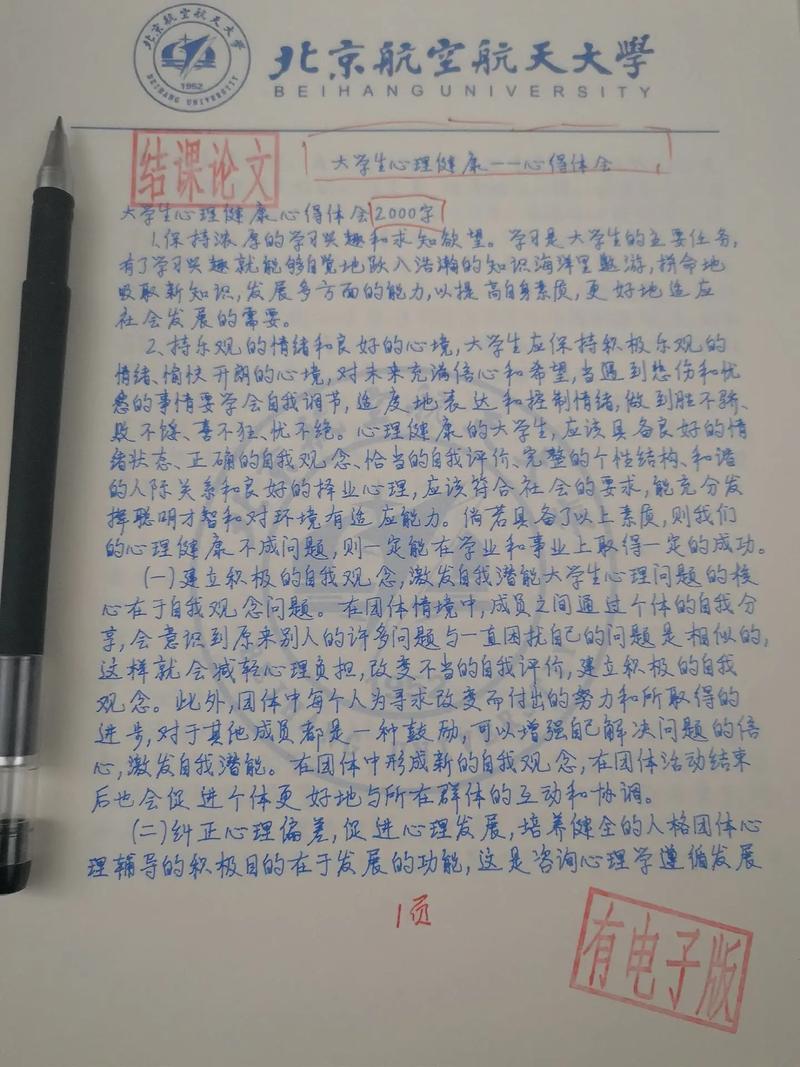 北京航空航天大學
BEIHANG UNIVERSITY
BEIHANG UNIVERSITY
1952
结课论文
大学生心理健康——心得体会
大学生心理健康心得体会2000字
1.保持浓厚的学习兴趣和求知欲望。学习是大学生的主要任务,
有了学习兴趣就能够自觉地跃入浩瀚的知识海洋里遨游,拼命地
吸取新知识,发展多方面的能力,以提高自身素质,更好地适应
社会发展的需要。
2、持乐观的情绪和良好的心境,大学生应保持积极乐观的
情绪、愉快开朗的心境,对未来充满信心和希望,当遇到悲伤和忧
愁的事情要学会自我调节,适度地表达和控制情绪,做到胜不骄、
败不馁、喜不狂、忧不绝。心理健康的大学生,应该具备良好的情
绪状态、正确的自我观念、恰当的自我评价、完整的个性结构、和谐
的人际关系和良好的择业心理,应该符合社会的要求,能充分发
挥聪明才智和对环境有适应能力。倘若具备了以上素质,则我们
的心理健康不成问题,则一定能在学业和事业上取得一定的成功。
(一)建立积极的自我观念,激发自我潜能大学生心理问题的核
心在于自我观念问题。在团体情境中,成员之间通过个体的自我分
享,会意识到原来别人的许多问题与一直困扰自己的问题是相似的,
这样就会减轻心理负担,改变不当的自我评价,建立积极的自我
观念。此外,团体中每个人为寻求改变而付出的努力和所取得的
进步,对于其他成员都是一种鼓励,可以增强自己解决问题的信
心,激发自我潜能。在团体中形成新的自我观念,在团体活动结束
后也会促进个体更好地与所在群体的互动和协调。
(二)纠正心理偏差,促进心理发展,培养健全的人格团体心
理辅导的积极目的在于发展的功能,这是咨询心理学遵循发展
1页
有电子版